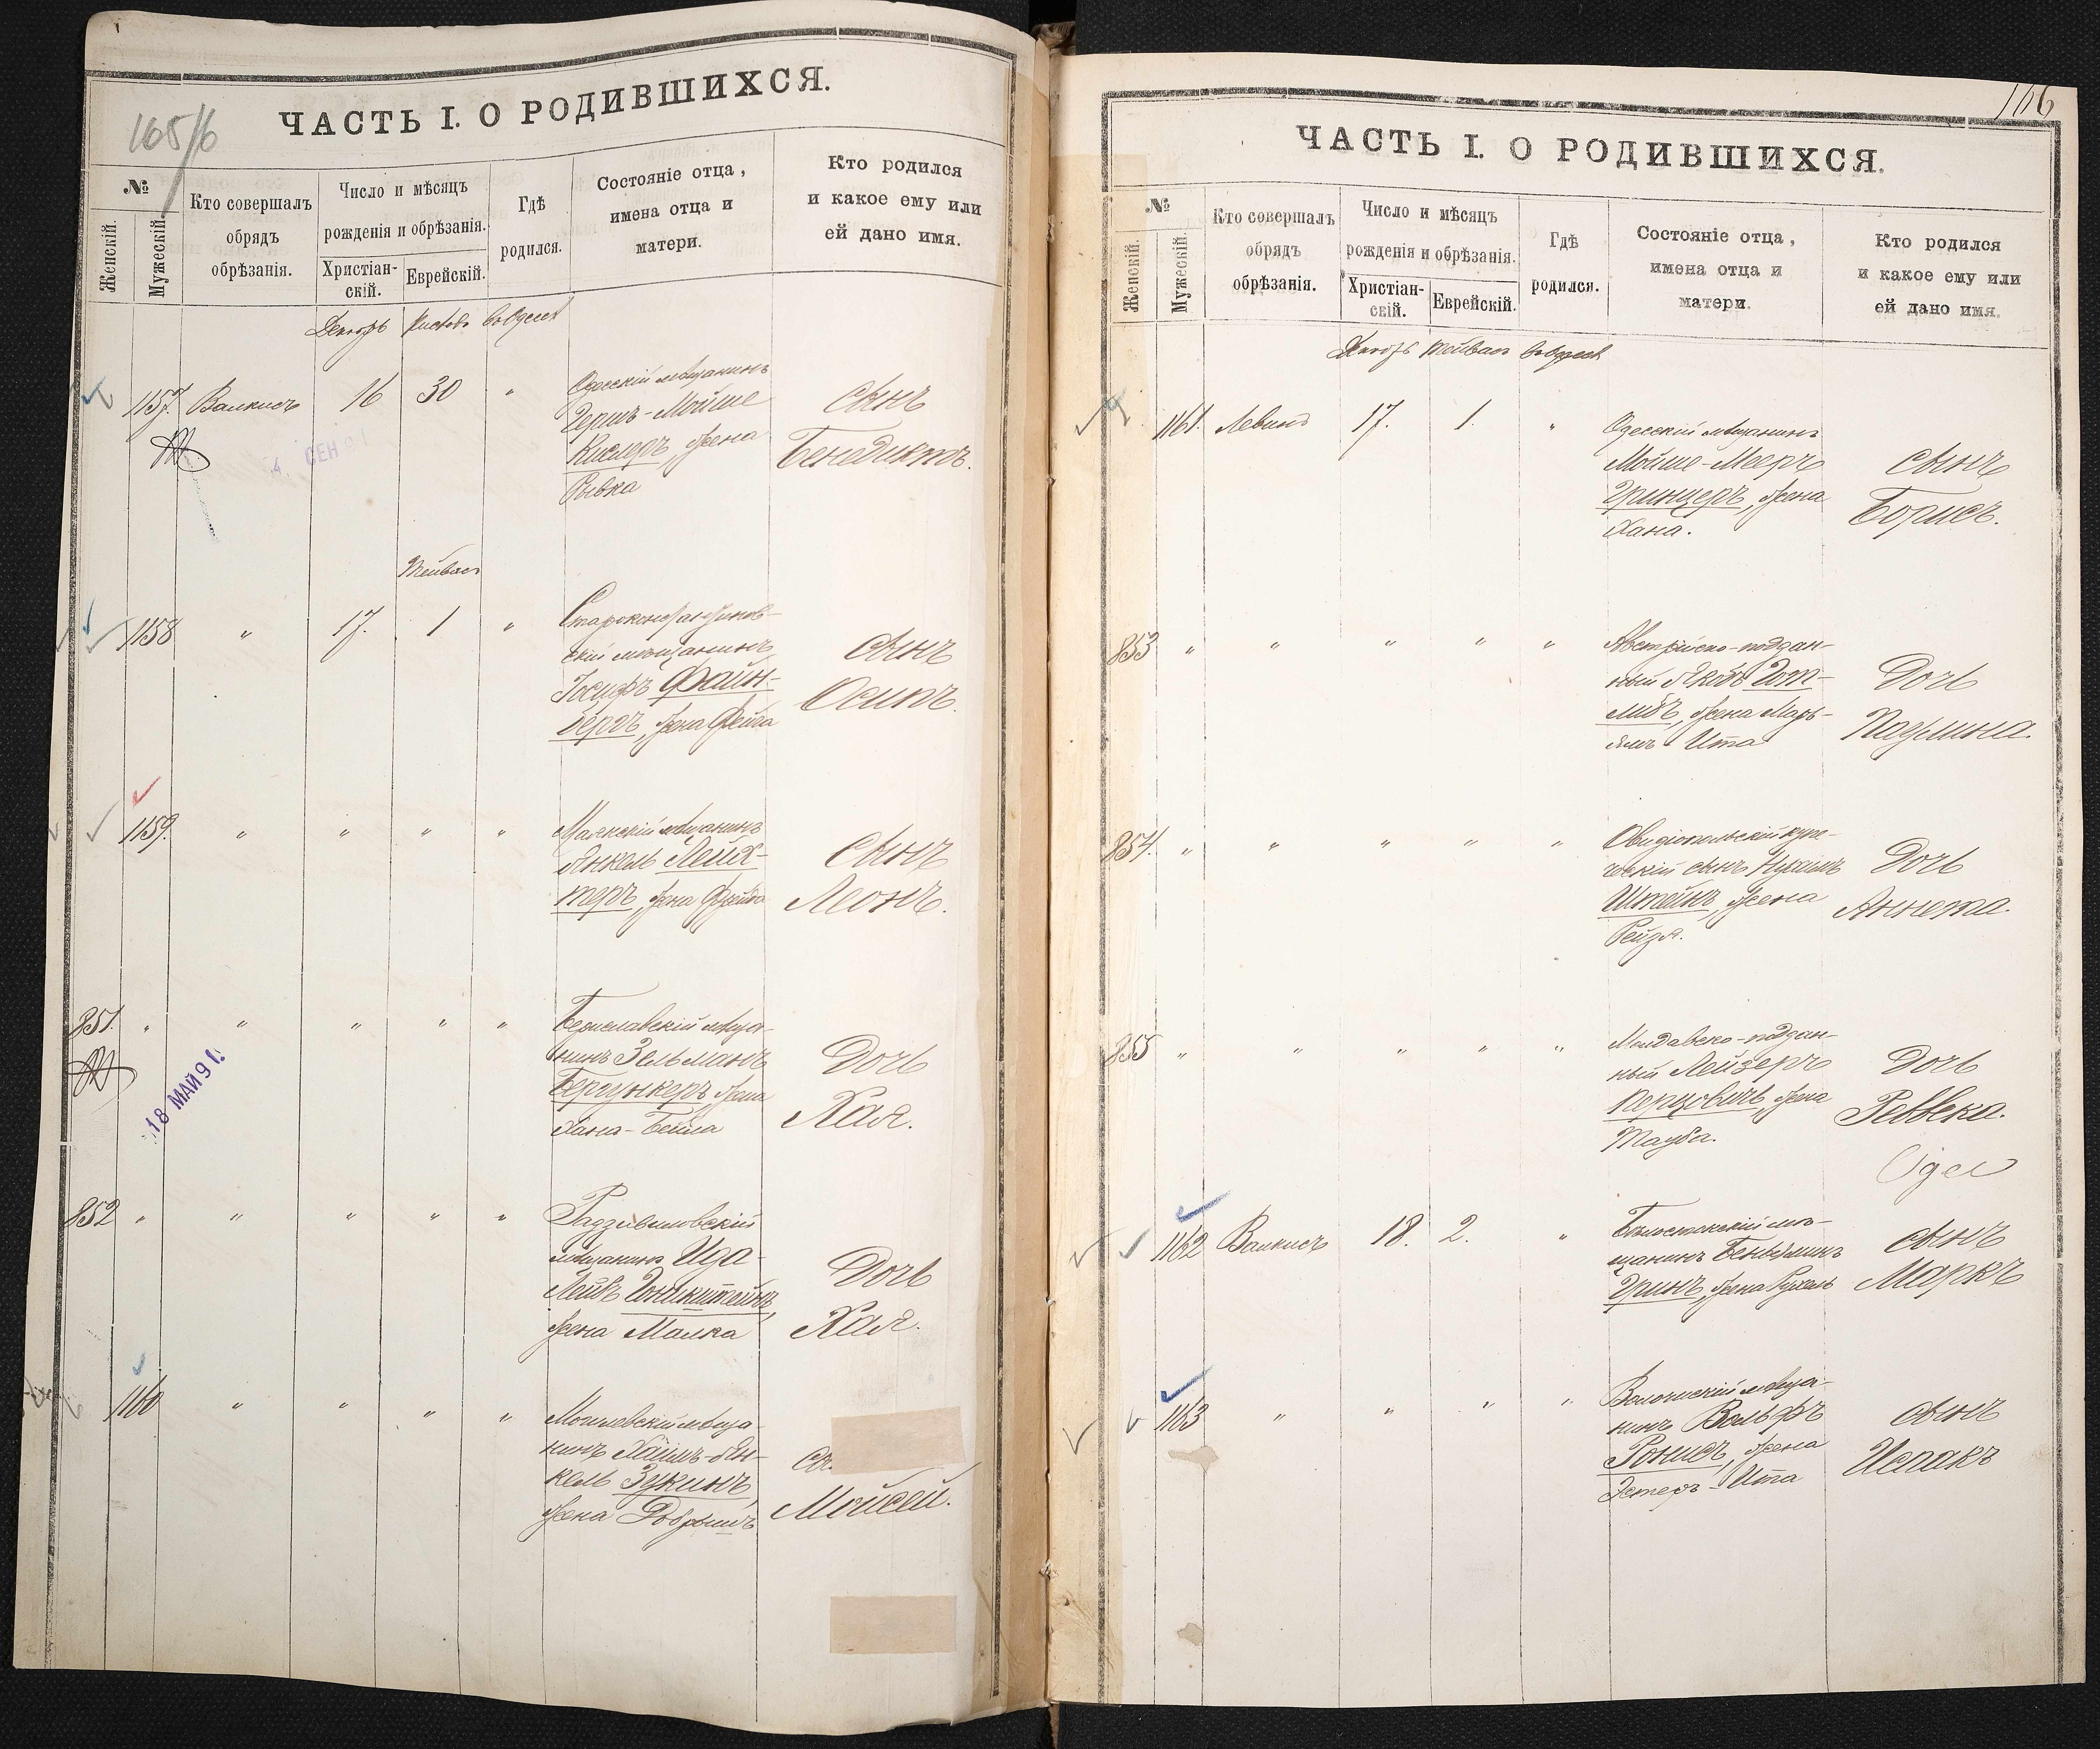 165/б
ЧАСТЬ I. О РОДИВШИХСЯ.
№
Женскій.
Мужескій.
Кто совершалъ
обрядъ
обрѣзанія.
Число и мѣсяцъ
рожденія и обрѣзанія.
Христіан-
скій.
Еврейскій.
Гдѣ
родился.
Состояніе отца,
имена отца и
матери.
Кто родился
и какое ему или
ей дано имя.
Декабрь Кислевъ Въ Одессѣ
1157. Валкисъ 16 30 „ Одесскій мѣщанинъ
Гершъ-Мойше
Кислеръ, жена
Рывка
сынъ
Бенедиктъ.
4. СЕН 91
Тейвасъ
1158 „ 17. 1 „ Староконстантинов-
скій мѣщанинъ
Іосифъ Файн-
бергъ, жена Фейга
сынъ
Осипъ.
1159. „ „ „ „ Маякскій мѣщанинъ
Янкель Лейх-
теръ, жена Фрейда
сынъ
Леонъ.
851. „ „ „ „ „ Бериславскій мѣща-
нинъ Зельманъ
жена
Хана-Бейла
Дочь
Хая.
18 МАЙ 91.
852 „ „ „ „ „ Радзивиловскій
мѣщанинъ
Лейбъ
жена Малка
Дочь
Хая.
1160 „ „ „ „ Могилевскій мѣща-
нинъ Хаимъ-Ян-
кель Зукинъ
жена Добрышъ
Мойсей.
106
ЧАСТЬ I. О РОДИВШИХСЯ.
№
Женскій.
Мужескій.
Кто совершалъ
обрядъ
обрѣзанія.
Число и мѣсяцъ
рожденія и обрѣзанія.
Христіан-
скій.
Еврейскій.
Гдѣ
родился.
Состояніе отца,
имена отца и
матери.
Кто родился
и какое ему или
ей дано имя.
Декабрь Тейвасъ Въ Одессѣ
1161. Левинъ 17. 1. „ Одесскій мѣщанинъ
Мойше-Мееръ
Гринцеръ, жена
Хана.
сынъ
Борисъ.
853 „ „ „ „ „ Австрійско-поддан-
ный Якобъ Гот-
либъ, жена Марь-
ямъ Ита
Дочь
Паулина.
854. „ „ „ „ „ Овидіопольскій купе-
ческій сынъ Нухимъ
Штейнъ, жена
Рейзя.
Дочь
Аннета.
855 „ „ „ „ „ Молдавско-поддан-
ный Лейзеръ
Перцовичъ, жена
Тауба.
Дочь
Реввека.
1162 Валкисъ 18. 2. „ Бѣлостокскій мѣ-
щанинъ Беньяминъ
Гринъ, жена Рухель
сынъ
Маркъ
1163 „ „ „ „ Волочискій мѣща-
нинъ Вольфъ
Ронисъ, жена
Эстеръ-Ита
сынъ
Исаакъ